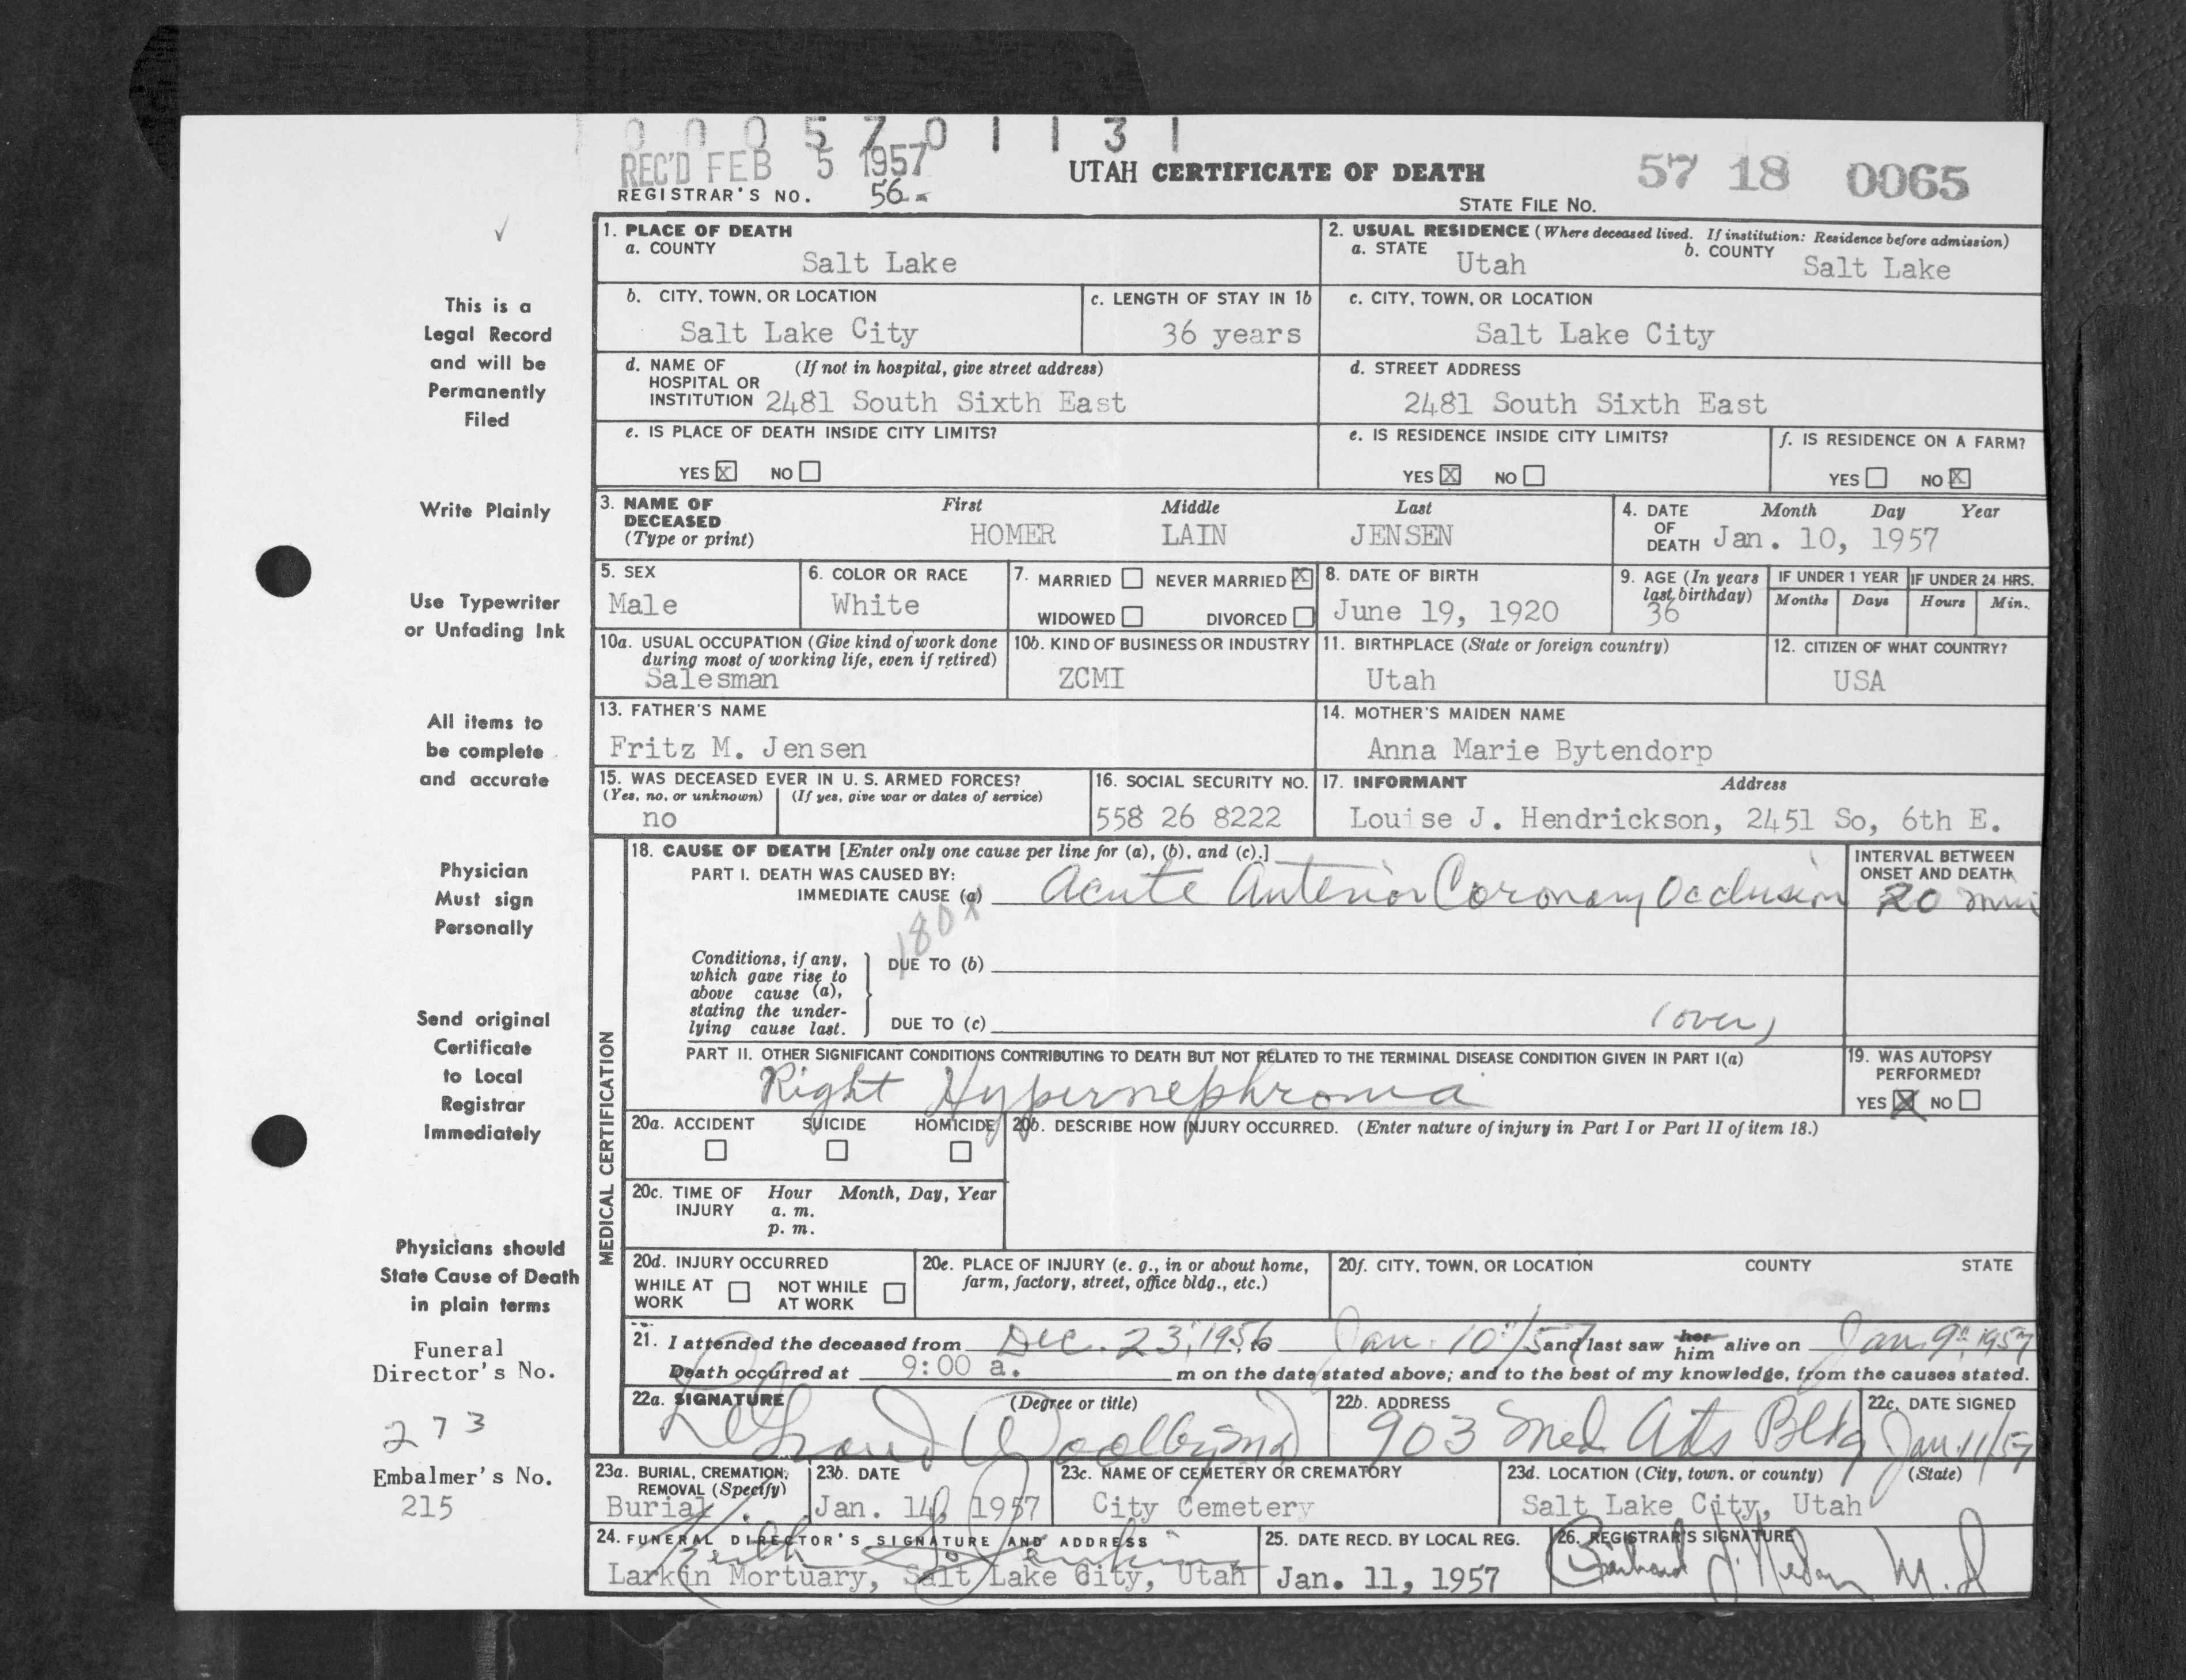 0 0 0 5 7 0 1 1 3 1
REC'D FEB 5 1957
REGISTRAR'S NO. 56.
UTAH CERTIFICATE OF DEATH
57 18 0065
STATE FILE NO.
This is a
Legal Record
and will be
Permanently
Filed
Write Plainly
Use Typewriter
or Unfading Ink
All items to
be complete
and accurate
Physician
Must sign
Personally
Send original
Certificate
to Local
Registrar
Immediately
Physicians should
State Cause of Death
in plain terms
Funeral
Director's No.
273
Embalmer's No.
215
1. PLACE OF DEATH
a. COUNTY
Salt Lake
2. USUAL RESIDENCE (Where deceased lived. If institution: Residence before admission)
a. STATE Utah b. COUNTY Salt Lake
b. CITY, TOWN, OR LOCATION
Salt Lake City
c. LENGTH OF STAY IN 1b
36 years
c. CITY, TOWN, OR LOCATION
Salt Lake City
d. NAME OF (If not in hospital, give street address)
HOSPITAL OR
INSTITUTION 2481 South Sixth East
d. STREET ADDRESS
2481 South Sixth East
e. IS PLACE OF DEATH INSIDE CITY LIMITS?
YES X NO
e. IS RESIDENCE INSIDE CITY LIMITS?
YES X NO
f. IS RESIDENCE ON A FARM?
YES NO X
3. NAME OF First Middle Last
DECEASED
(Type or print) HOMER LAIN JENSEN
4. DATE Month Day Year
OF
DEATH Jan. 10, 1957
5. SEX
Male
6. COLOR OR RACE
White
7. MARRIED NEVER MARRIED X
WIDOWED DIVORCED
8. DATE OF BIRTH
June 19, 1920
9. AGE (In years
last birthday)
36
IF UNDER 1 YEAR
Months Days
IF UNDER 24 HRS.
Hours Min.
10a. USUAL OCCUPATION (Give kind of work done
during most of working life, even if retired)
Salesman
10b. KIND OF BUSINESS OR INDUSTRY
ZCMI
11. BIRTHPLACE (State or foreign country)
Utah
12. CITIZEN OF WHAT COUNTRY?
USA
13. FATHER'S NAME
Fritz M. Jensen
14. MOTHER'S MAIDEN NAME
Anna Marie Bytendorp
15. WAS DECEASED EVER IN U. S. ARMED FORCES?
(Yes, no, or unknown) (If yes, give war or dates of service)
no
16. SOCIAL SECURITY NO.
558 26 8222
17. INFORMANT Address
Louise J. Hendrickson, 2451 So, 6th E.
MEDICAL CERTIFICATION
18. CAUSE OF DEATH [Enter only one cause per line for (a), (b), and (c).]
PART I. DEATH WAS CAUSED BY:
IMMEDIATE CAUSE (a) Acute Anterior Coronary Occlusion
INTERVAL BETWEEN
ONSET AND DEATH
20 min
180X
Conditions, if any,
which gave rise to
above cause (a),
stating the under-
lying cause last.
DUE TO (b)
DUE TO (c) (over)
PART II. OTHER SIGNIFICANT CONDITIONS CONTRIBUTING TO DEATH BUT NOT RELATED TO THE TERMINAL DISEASE CONDITION GIVEN IN PART I(a)
Right Hypernephroma
19. WAS AUTOPSY
PERFORMED?
YES X NO
20a. ACCIDENT SUICIDE HOMICIDE
20b. DESCRIBE HOW INJURY OCCURRED. (Enter nature of injury in Part I or Part II of item 18.)
20c. TIME OF Hour Month, Day, Year
INJURY a. m.
p. m.
20d. INJURY OCCURRED
WHILE AT WORK NOT WHILE AT WORK
20e. PLACE OF INJURY (e. g., in or about home,
farm, factory, street, office bldg., etc.)
20f. CITY, TOWN, OR LOCATION COUNTY STATE
21. I attended the deceased from Dec. 23, 1956 to Jan. 10"/57 and last saw her him alive on Jan 9" 1957
Death occurred at 9:00 a. m on the date stated above; and to the best of my knowledge, from the causes stated.
22a. SIGNATURE (Degree or title)
LeGrand Woolley MD
22b. ADDRESS
903 Med Arts Bldg
22c. DATE SIGNED
Jan 11/57
23a. BURIAL, CREMATION,
REMOVAL (Specify)
Burial
23b. DATE
Jan. 14, 1957
23c. NAME OF CEMETERY OR CREMATORY
City Cemetery
23d. LOCATION (City, town, or county) (State)
Salt Lake City, Utah
24. FUNERAL DIRECTOR'S SIGNATURE AND ADDRESS
Larkin Mortuary, Salt Lake City, Utah
25. DATE RECD. BY LOCAL REG.
Jan. 11, 1957
26. REGISTRAR'S SIGNATURE
M.D